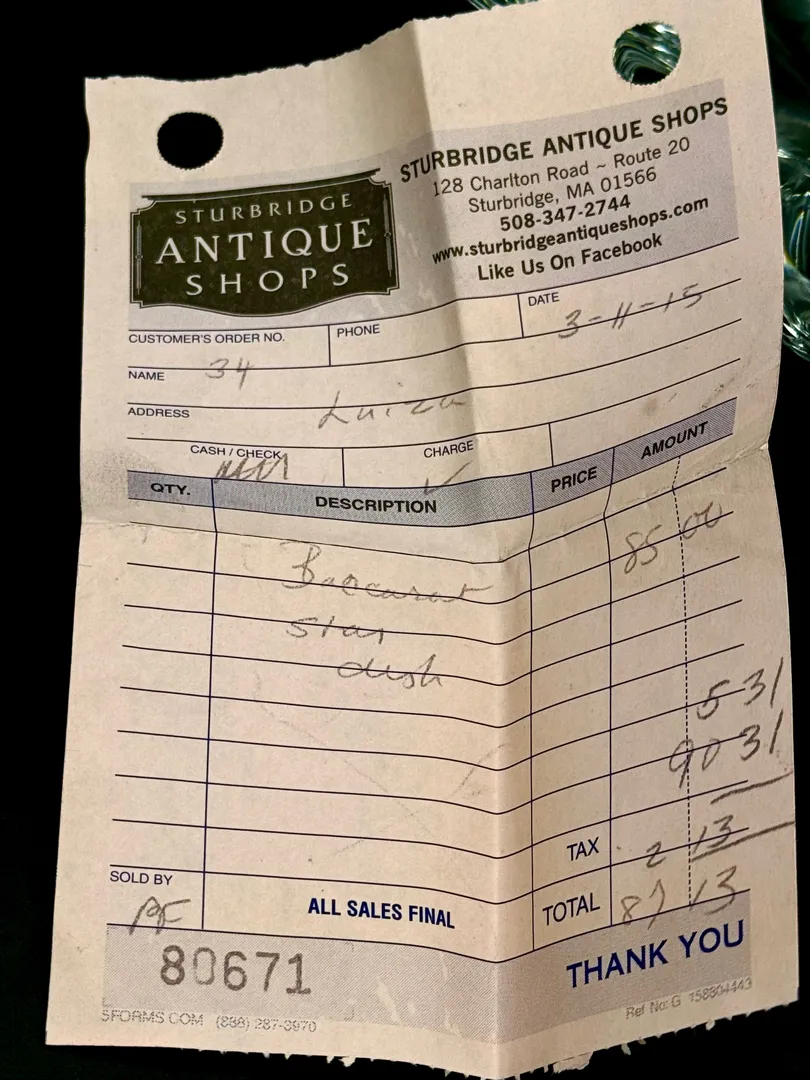 STURBRIDGE
ANTIQUE
SHOPS
STURBRIDGE ANTIQUE SHOPS
128 Charlton Road ~ Route 20
Sturbridge, MA 01566
508-347-2744
www.sturbridgeantiqueshops.com
Like Us On Facebook
CUSTOMER'S ORDER NO.
PHONE
DATE
3-11-15
NAME
34
ADDRESS
Luiza
CASH / CHECK
CHARGE
✓
QTY.
DESCRIPTION
PRICE
AMOUNT
Baccarat
85 00
star
dish
5 31
90 31
TAX
2 13
SOLD BY
ALL SALES FINAL
TOTAL
87 13
80671
THANK YOU
SFORMS.COM (888) 287-3970
Ref No: G 158304443